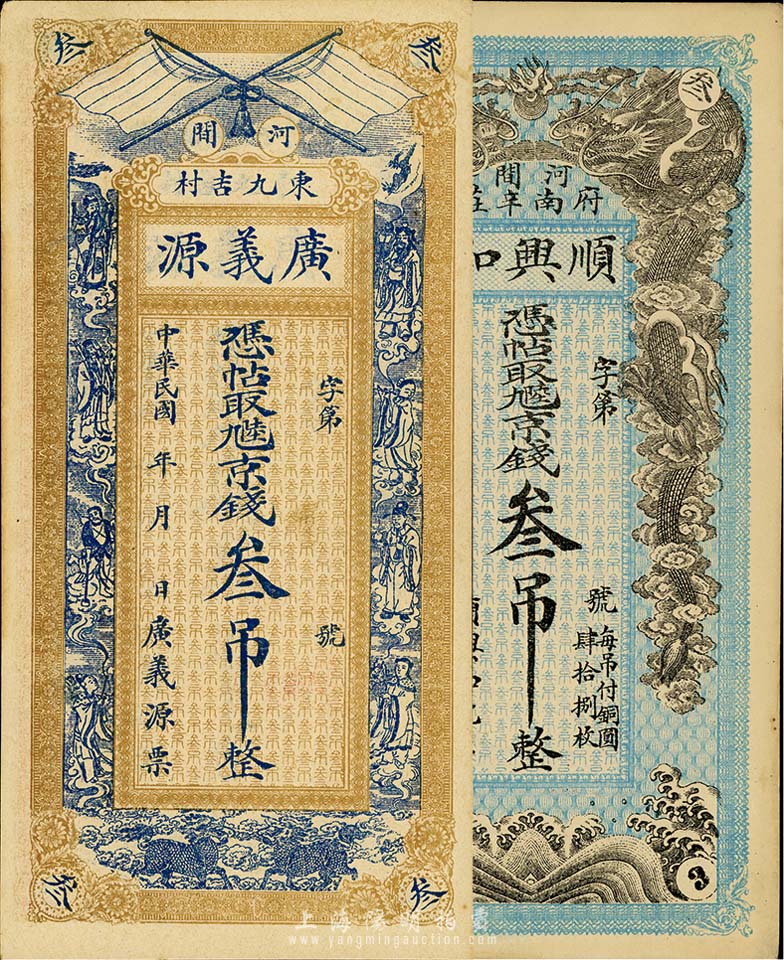 叁 叁
河間
東九吉村
廣義源
字第 號
憑帖取憑京錢叁吊整
中華民國 年 月 日 廣義源票
叁 叁
叁
河間
府河南辛莊
順興和
字第 號
每吊付銅圓
肆拾捌枚
憑帖取憑京錢叁吊整
3
上海陽明拍賣
www.yangmingauction.com